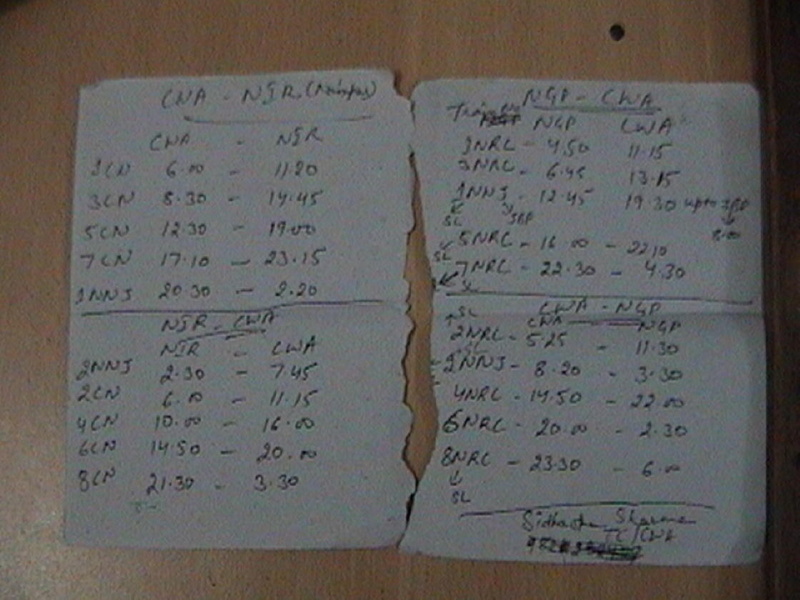 CWA - NIR (Nainpur)
CWA - NIR
1CN 6.00 - 11.20
3CN 8.30 - 14.45
5CN 12.30 - 19.00
7CN 17.10 - 23.15
1NNJ 20.30 - 2.20
NIR - CWA
NIR - CWA
2NNJ 2.30 - 7.45
2CN 6.00 - 11.15
4CN 10.00 - 16.00
6CN 14.50 - 20.00
8CN 21.30 - 3.30
NGP - CWA
NGP CWA
1NRC - 4.50 11.15
3NRC - 6.45 13.15
1NNJ - 12.45 19.30 upto JBP
SL JBP 8.00
5NRC - 16.00 - 22.10
SL
7NRC - 22.30 - 4.30
SL
CWA - NGP
SL CWA NGP
2NRC - 5.25 - 11.30
SL
2NNJ - 8.20 - 3.30
4NRC - 14.50 - 22.00
6NRC - 20.00 - 2.30
8NRC - 23.30 - 6.00
SL
Sharma
TC/CWA